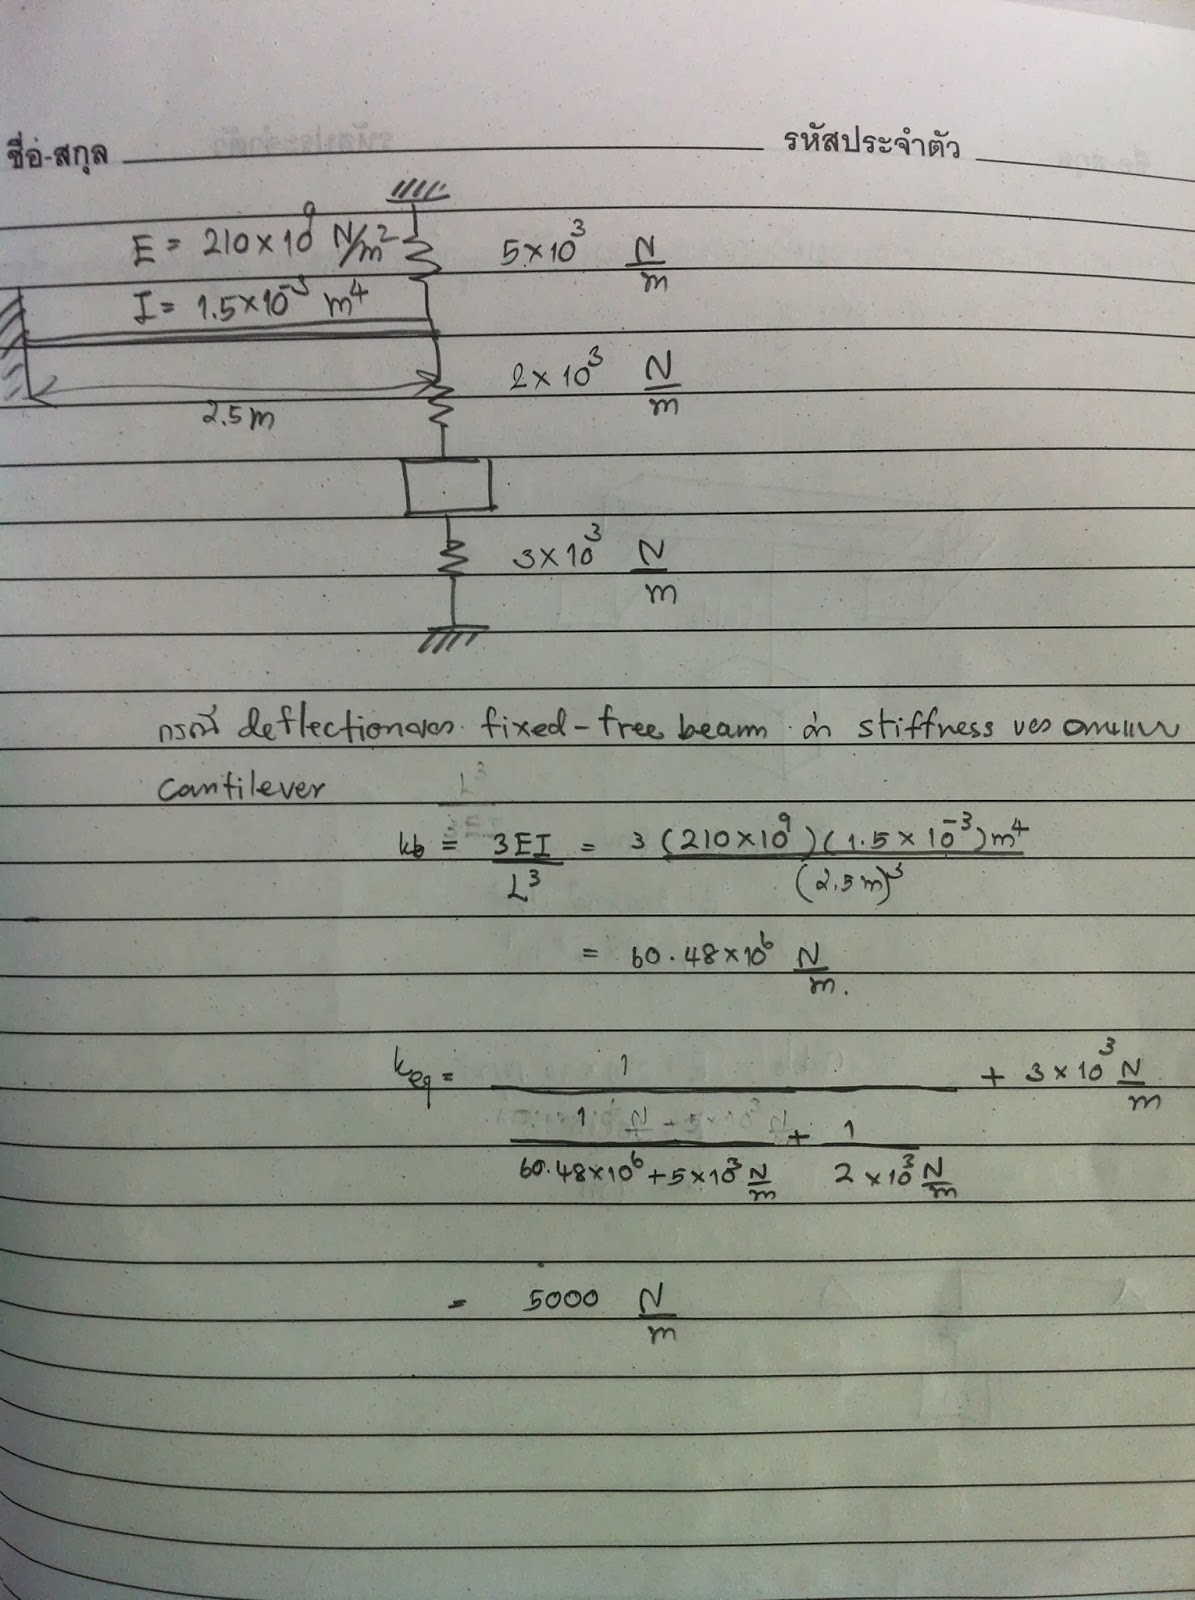 ชื่อ-สกุล รหัสประจำตัว
E = 210×10⁹ N/m²
5×10³ N/m
I = 1.5×10⁻³ m⁴
2×10³ N/m
2.5m
3×10³ N/m
กรณี deflectionของ fixed-free beam ค่า stiffness ของ คานแบบ
cantilever
kb = 3EI/L³ = 3(210×10⁹)(1.5×10⁻³)m⁴/(2.5m)³
= 60.48×10⁶ N/m.
keq = 1/(1/(60.48×10⁶+5×10³ N/m) + 1/(2×10³ N/m)) + 3×10³ N/m
= 5000 N/m